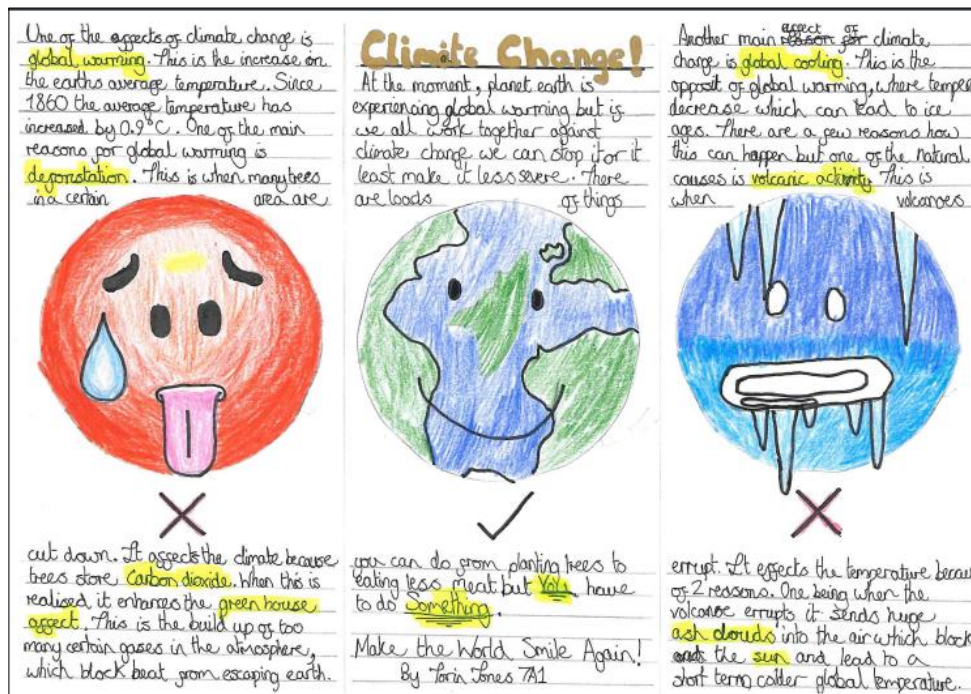 One of the affects of climate change is
global warming. This is the increase on
the earths average temperature. Since
1860 the average temperature has
increased by 0.9°C. One of the main
reasons for global warming is
deforstation. This is when many trees
in a certain area are
cut down. It affects the climate because
trees store Carbon dioxide. When this is
realised it enhances the green house
affect. This is the build up of too
many certain gases in the atmosphere,
which block heat from escaping earth.
Climate Change!
At the moment, planet earth is
experiencing global warming but if
we all work together against
climate change we can stop it or it
least make it less severe. There
are loads of things
you can do from planting trees to
eating less meat but You have
to do Something.
Make the World Smile Again!
By Torin Jones 7A1
Another main affect of climate
change is global cooling. This is the
opposit of global warming, where temper
decrease which can lead to ice
ages. There are a few reasons how
this can happen but one of the natural
causes is volcanic activity. This is
when volcanoes
errupt. It effects the temperature becau
of 2 ressons. One being when the
volcanoe errupts it sends huge
ash clouds into the air which block
the sun and lead to a
short term colder global temperature.